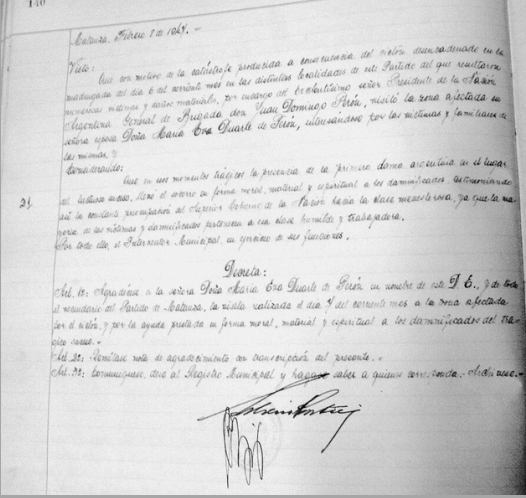 140
Matanza, Febrero 8 de 1947. -
Visto:
Que con motivo de la catástrofe producida a consecuencia del ciclón desencadenado en la
madrugada del día 6 del corriente mes en las distintas localidades de este Partido del que resultaron
numerosas víctimas y daños materiales, por encargo del Excelentísimo señor Presidente de la Nación
Argentina General de Brigada don Juan Domingo Perón, visitó la zona afectada su
señora esposa Doña María Eva Duarte de Perón, interesándose por las víctimas y familiares de
las mismas, y
Considerando:
Que en esos momentos trágicos la presencia de la primera dama argentina en el lugar
del luctuoso suceso, llevó el socorro en forma moral, material y espiritual a los damnificados, testimoniando
así la constante preocupación del Superior Gobierno de la Nación hacia la clase menesterosa, ya que la ma-
yoría de las víctimas y damnificados pertenecen a esa clase humilde y trabajadora.
Por todo ello, el Interventor Municipal, en ejercicio de sus funciones.
21.
Decreta:
Art. 1º: Agradécese a la señora Doña María Eva Duarte de Perón en nombre de este D. E., y de todo
el vecindario del Partido de Matanza, la visita realizada el día 7 del corriente mes a la zona afectada
por el ciclón, y por la ayuda prestada en forma moral, material y espiritual a los damnificados del trá-
gico suceso. -
Art. 2º: Remítase nota de agradecimiento con transcripción del presente. -
Art. 3º: Comuníquese, dése al Registro Municipal y hágase saber a quienes corresponda. - Archívese. -